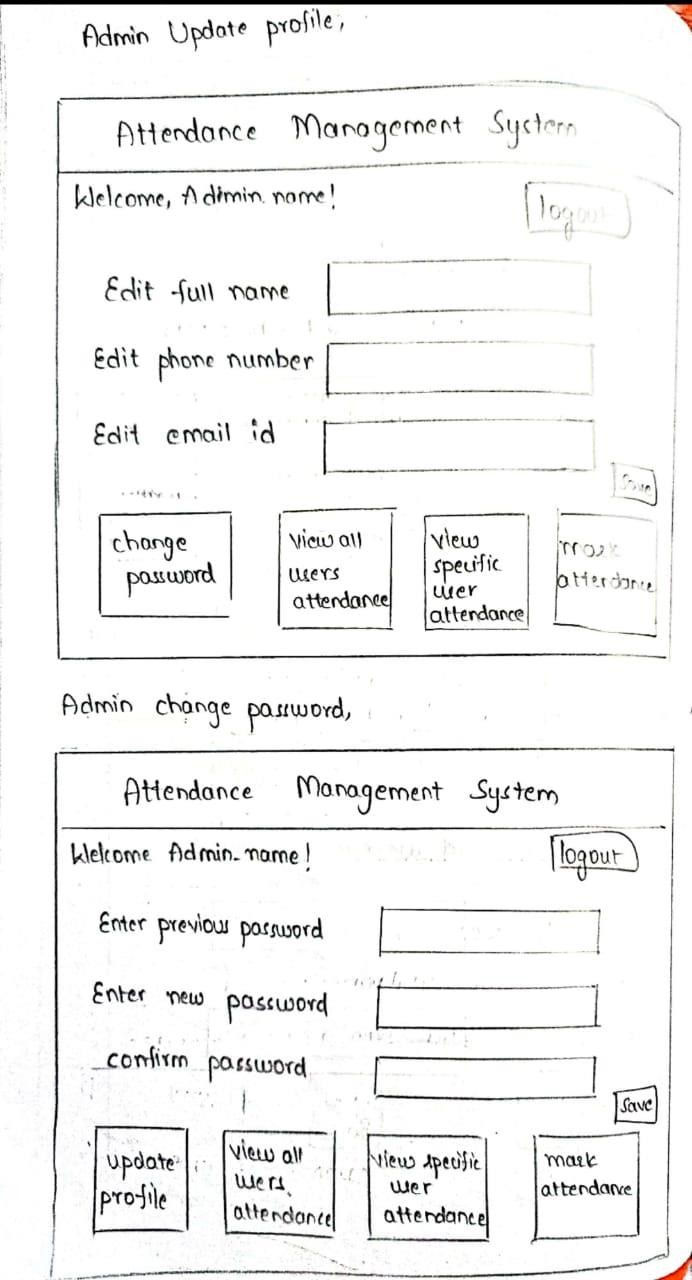 Admin Update profile,
Attendance Management System
Welcome, Adimin.name!
logout
Edit full name
Edit phone number
Edit email id
Save
change
password
View all
users
attendance
view
specific
user
attendance
mark
attendance
Admin change password,
Attendance Management System
Welcome Admin-name!
logout
Enter previous password
Enter new password
confirm password
Save
update
profile
view all
users
attendance
view specific
user
attendance
mark
attendance